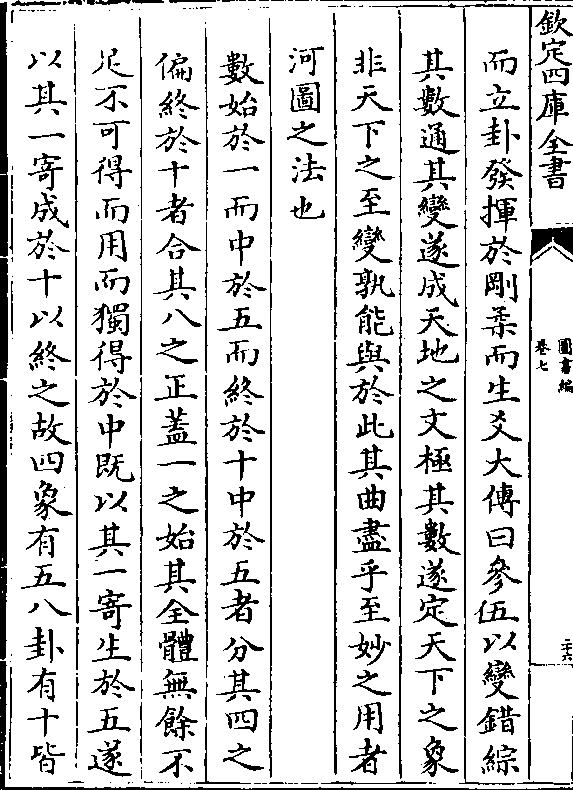 欽定四庫全書
圖書編
卷七
二十六
而立卦發揮於剛柔而生爻大傳曰參伍以變錯綜
其數通其變遂成天地之文極其數遂定天下之象
非天下之至變孰能與於此其曲盡乎至妙之用者
河圖之法也
數始於一而中於五而終於十中於五者分其四之
偏終於十者合其八之正蓋一之始其全體無餘不
足不可得而用而獨得於中既以其一寄生於五遂
以其一寄成於十以終之故四象有五八卦有十皆